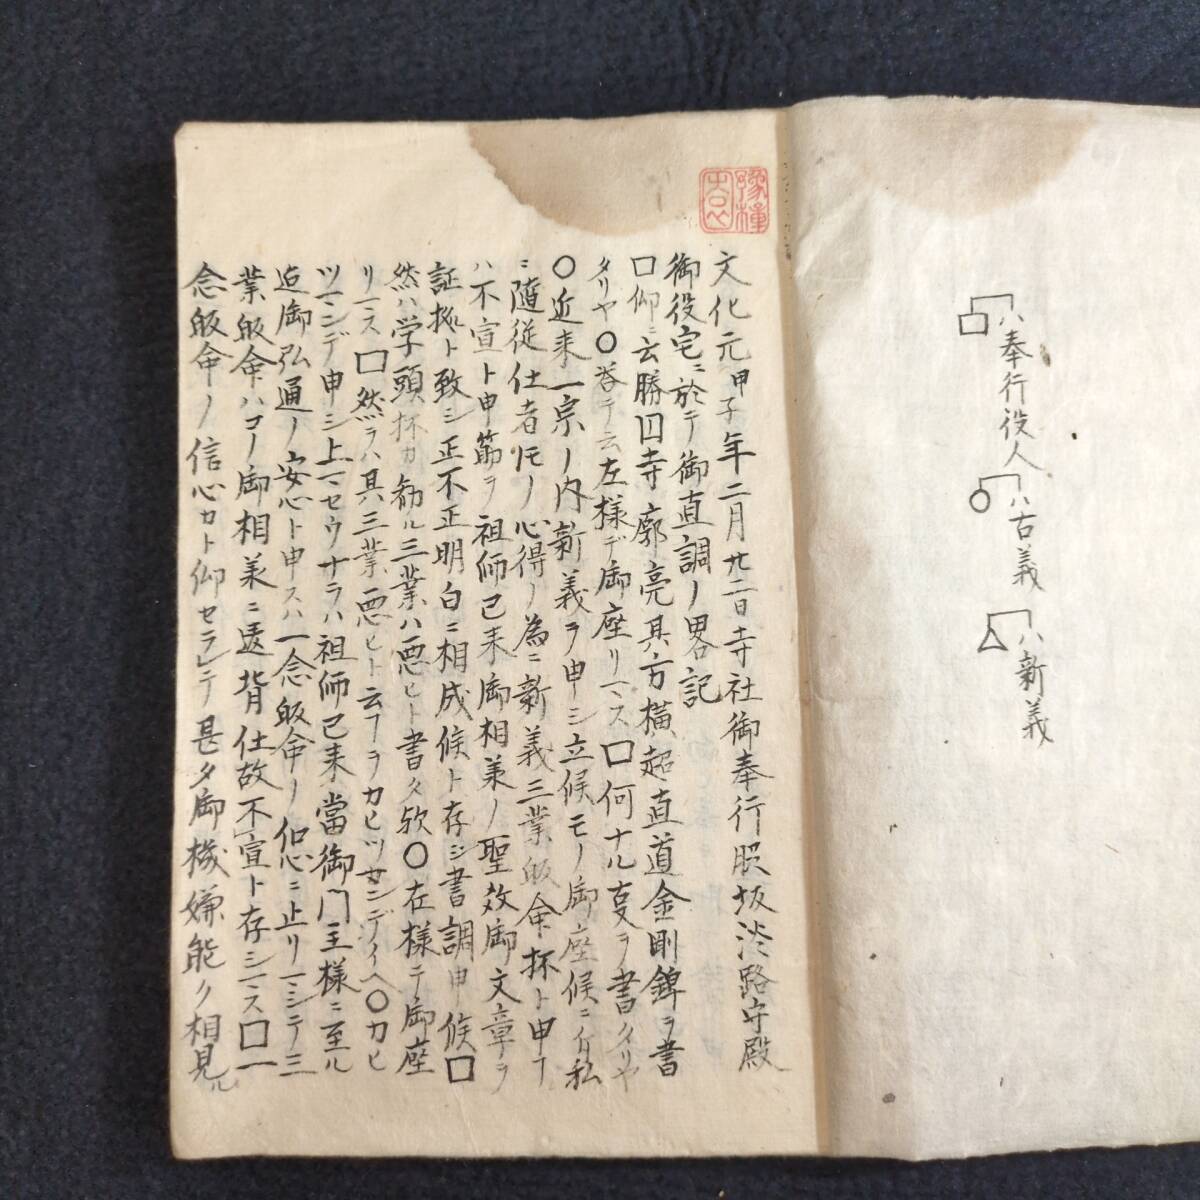 □ハ奉行役人
○ハ古義
△ハ新義
文化元甲子年二月廿二日寺社御奉行脇坂淡路守殿
御役宅ニ於テ御直調ノ畧記
□仰ニ云勝囙寺廓亮其方橫超直道金剛錍ヲ書
タリヤ○答テ云左様デ御座リマス□何ナル叓ヲ書タリヤ
○近来一宗ノ内新義ヲ申シ立候モノ御座候ニ付私
ニ隨従仕者𪜈ノ心得ノ為ニ新義三業皈命杯ト申フ
ハ不宣ト申節ヲ祖師已来御相兼ノ聖教御文章ヲ
証拠ト致シ正不正明白ニ相成候ト存シ書調申候□
然ハ学頭杯カ勧ル三業ハ悪ヒト書タ欤○左様テ御座
リマス□然ラハ其三業悪ヒト云フヲカヒツマンデイヘ○カヒ
ツマンデ申シ上マセウナラハ祖師已来當御門主様ニ至ル
迠御弘通ノ安心ト申スハ一念皈命ノ信心ニ止リマシテ三
業皈命ハコノ御相義ニ違背仕故不宣ト存シマス□一
念皈命ノ信心カト仰セラレテ甚タ御機嫌能ク相見ル